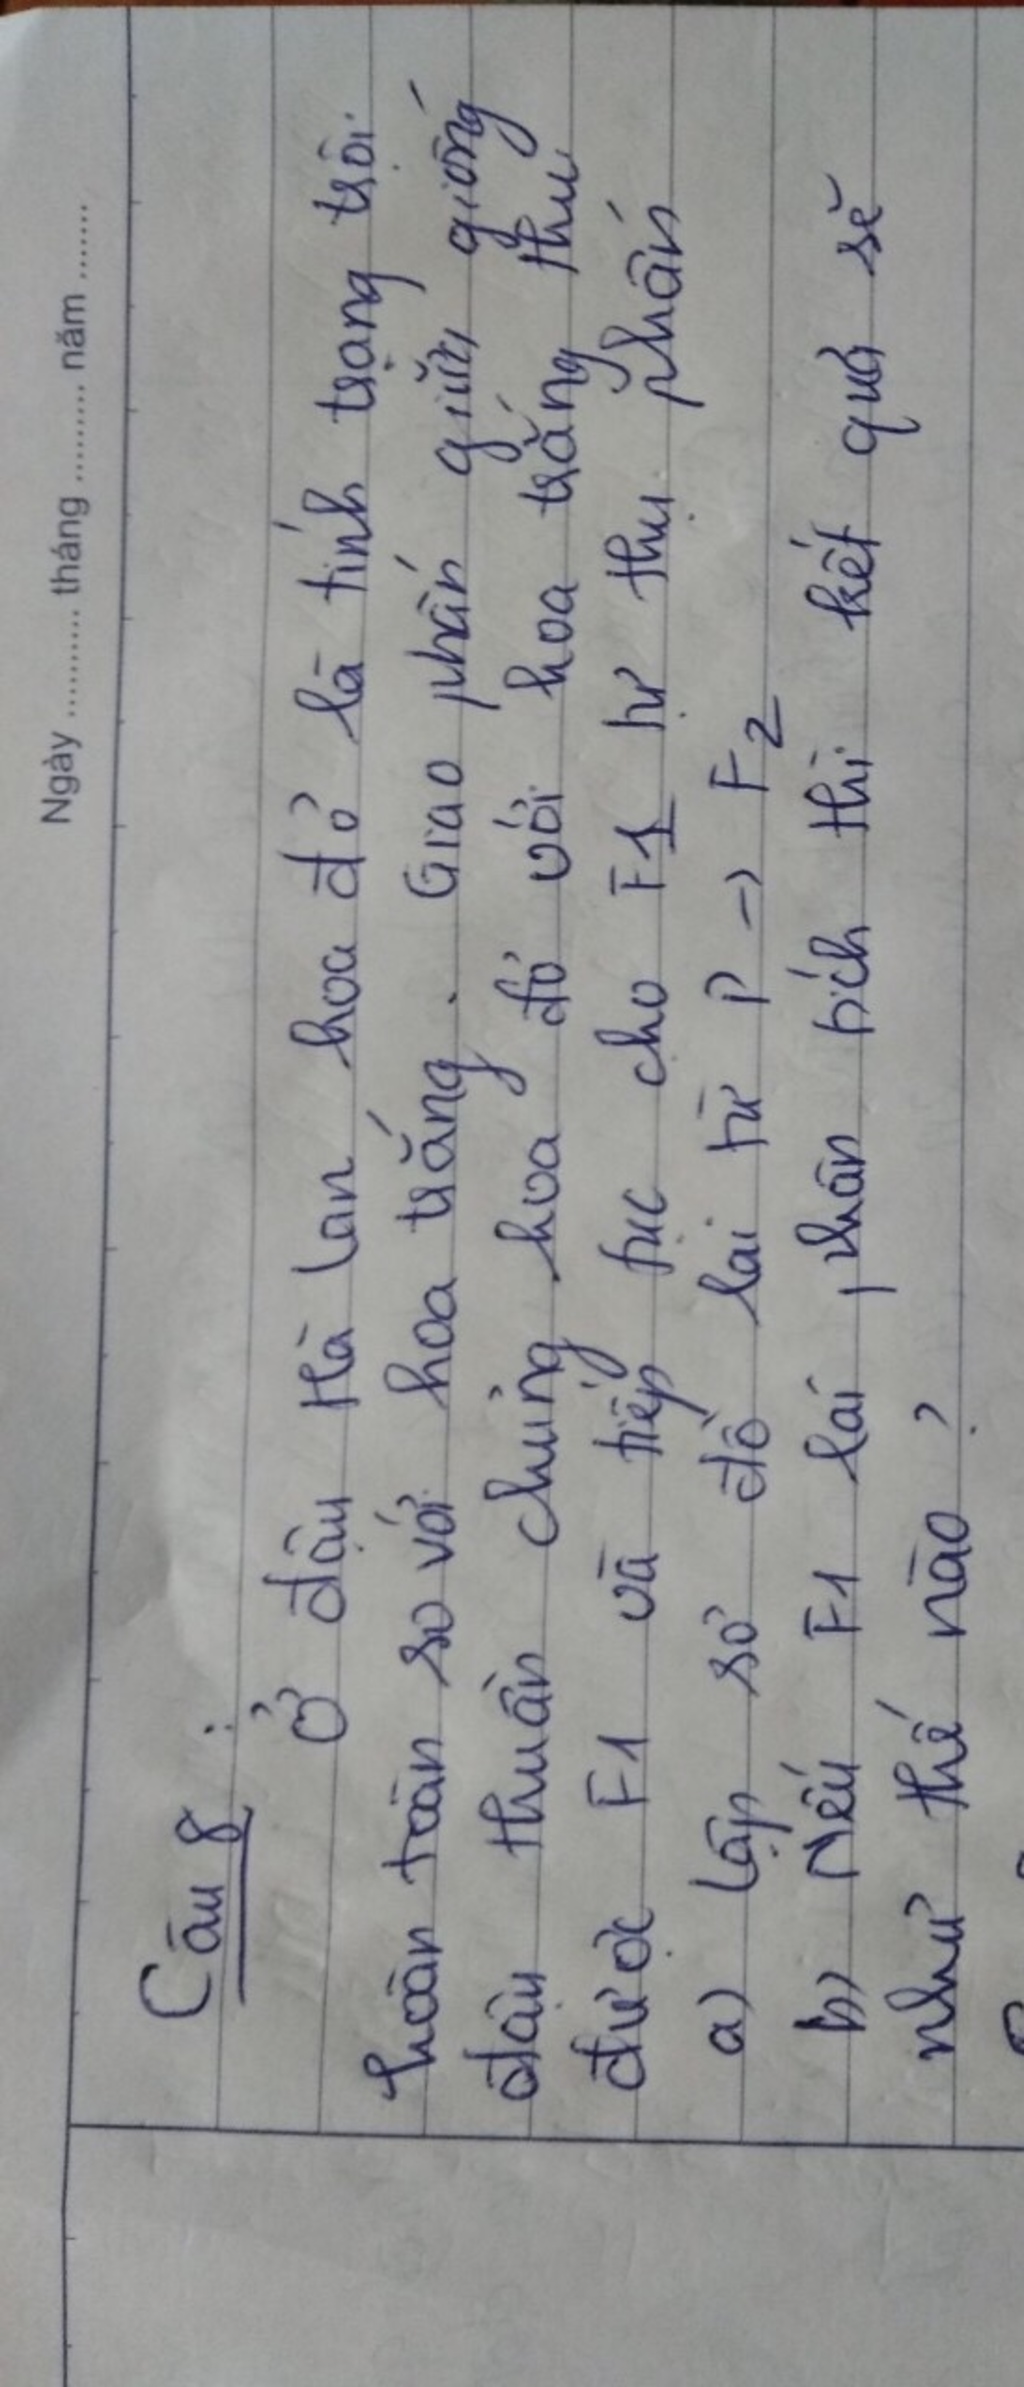 Ngày .......... tháng ......... năm .......
Câu 8 :
Ở đậu Hà Lan hoa đỏ là tính trạng trội
hoàn toàn so với hoa trắng. Giao phấn giữa giống
đậu thuần chủng hoa đỏ với hoa trắng thu
được F1 và tiếp tục cho F1 tự thụ phấn
a) Lập sơ đồ lai từ P -> F2
b) Nếu F1 lai phân tích thì kết quả sẽ
như thế nào ?